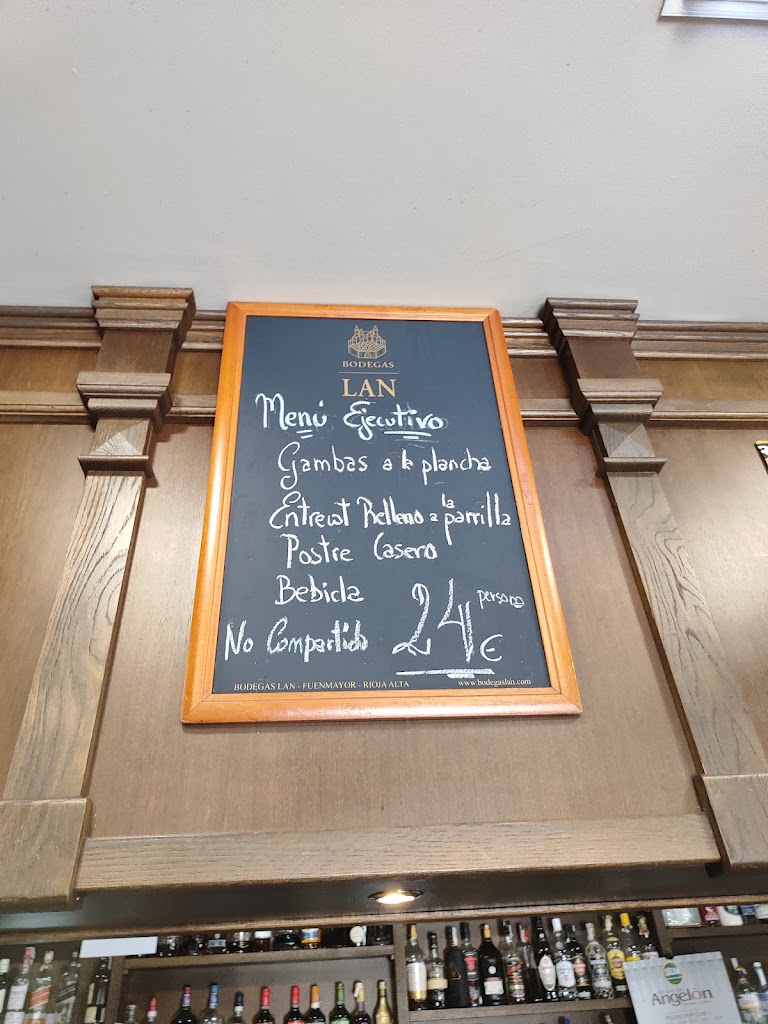 BODEGAS
LAN
Menú Ejecutivo
Gambas a la plancha
Entrecot Relleno a la parrilla
Postre Casero
Bebida
No Compartido 24€ persona
BODEGAS LAN - FUENMAYOR - RIOJA ALTA www.bodegaslan.com
Angelón